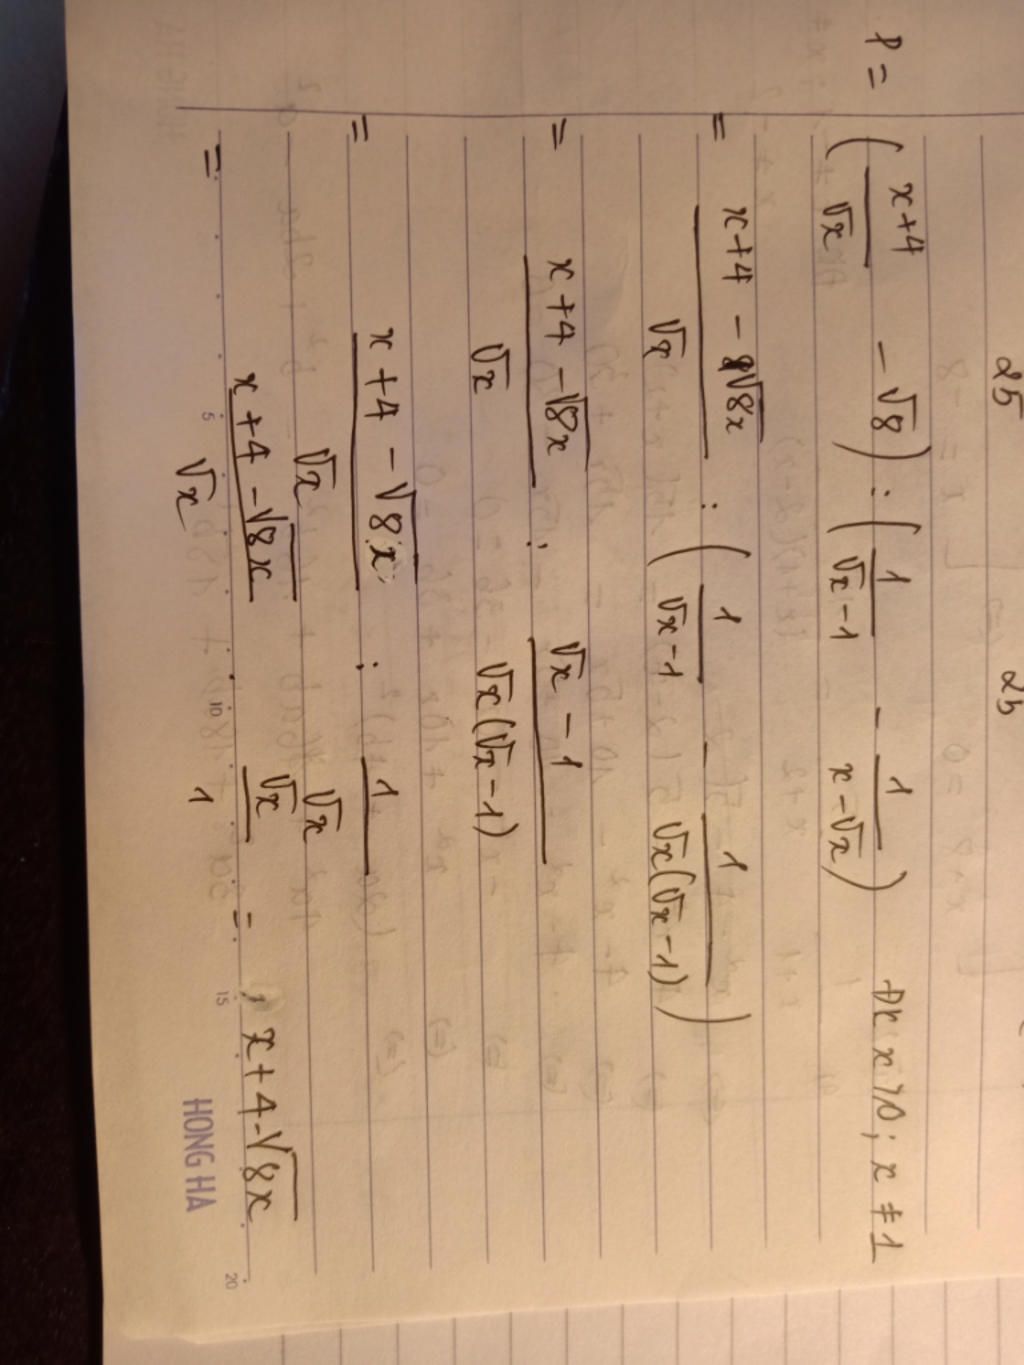 25 25
P = ( x+4/√x - √8 ) : ( 1/√x-1 - 1/x-√x ) Đk x>0; x ≠ 1
= x+4 - √8x/√x : ( 1/√x-1 - 1/√x(√x-1) )
= x+4 - √8x/√x : √x - 1/√x(√x-1)
= x+4 - √8x/√x : 1/√x
= x+4 - √8x/√x . √x/1 = x+4-√8x
5 10 15 20
HONG HA